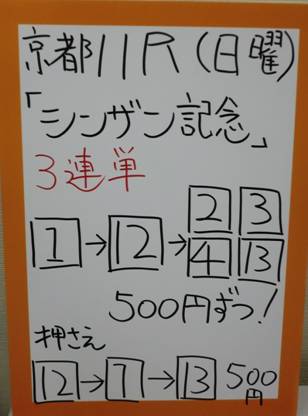 京都11R(日曜)
「シンザン記念」
3連単
1→12→2 3 4 13
500円ずつ!
押さえ
12→1→13 500円